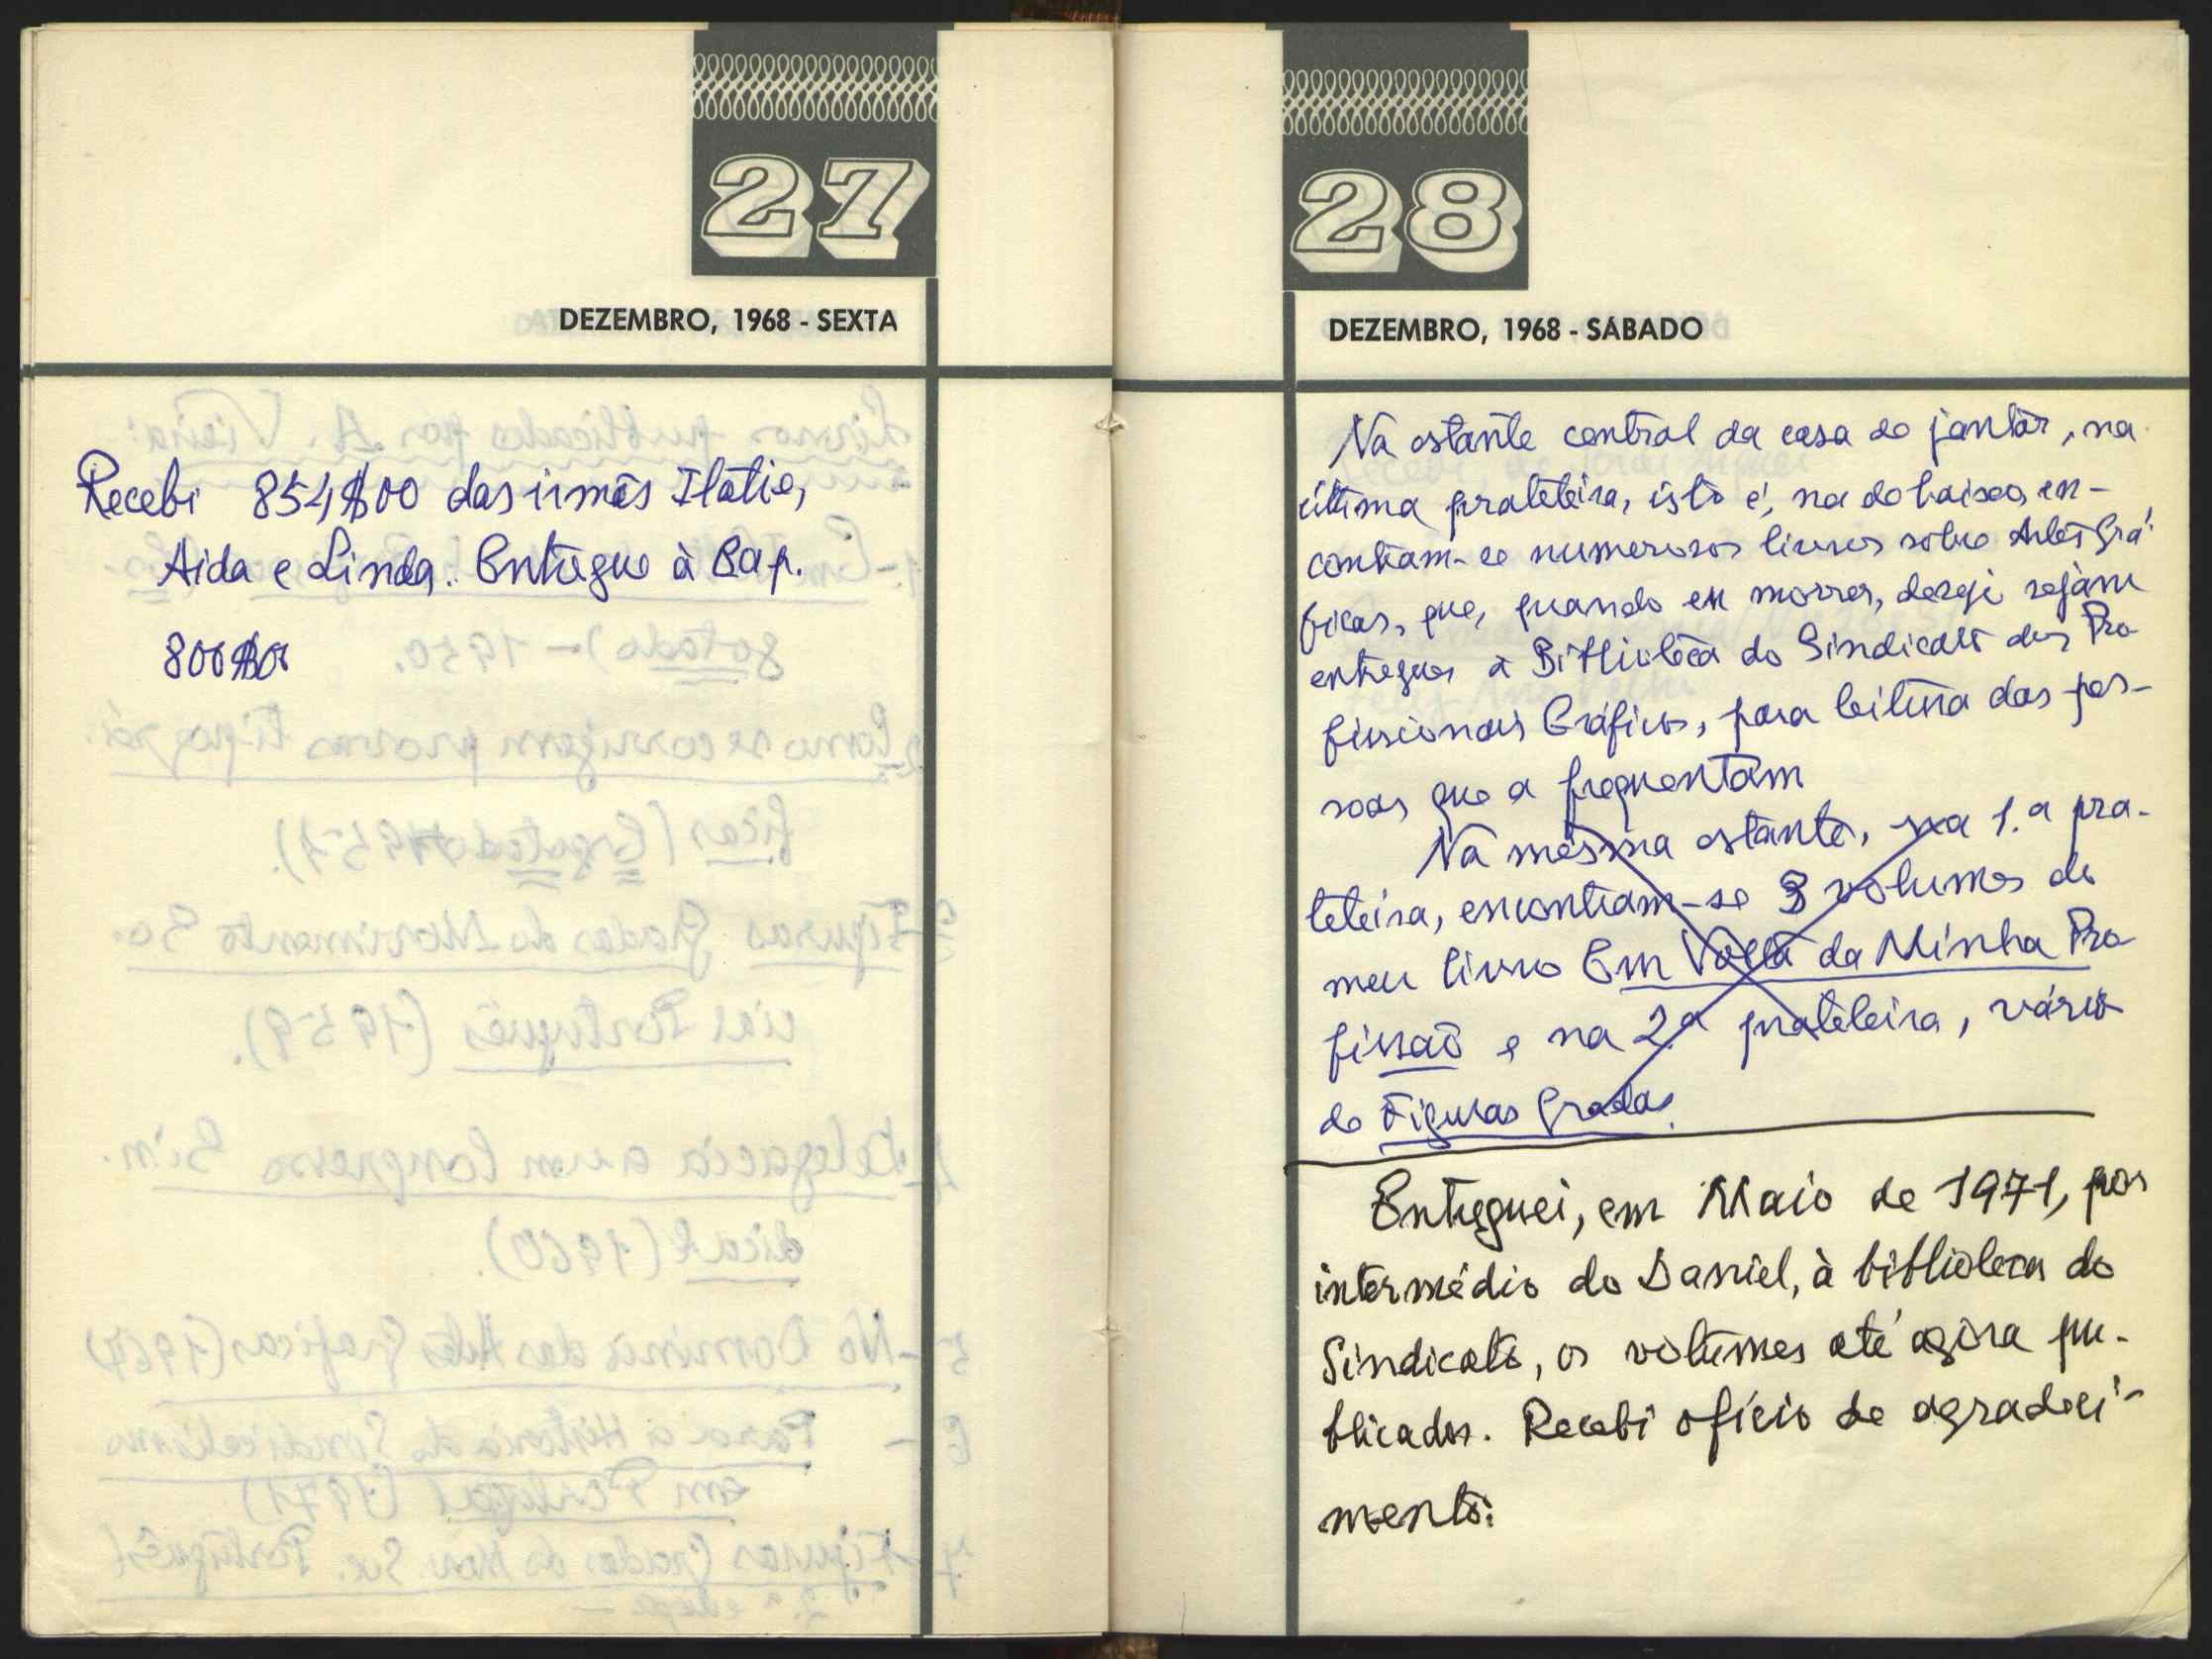 27
DEZEMBRO, 1968 - SEXTA
Recebi 854$00 das irmãs Ilátia,
Aida e Linda. Entregue à Bap.
800$00
28
DEZEMBRO, 1968 - SÁBADO
Na estante central da casa de jantar, na
última prateleira, isto é, na de baixo, en-
contram-se numerosos livros sobre Artes Grá-
ficas, que, quando eu morrer, desejo sejam
entregues à Biblioteca do Sindicato dos Pro-
fissionais Gráficos, para leitura das pes-
soas que a frequentam
Na mesma estante, na 1.ª pra-
teleira, encontram-se 3 volumes do
meu livro Em Volta da Minha Pro-
fissão e na 2.ª prateleira, vários
de Figuras Gradas.
Entreguei, em Maio de 1971, por
intermédio do Daniel, à biblioteca do
Sindicato, os volumes até agora pu-
blicados. Recebi ofício de agradeci-
mento.